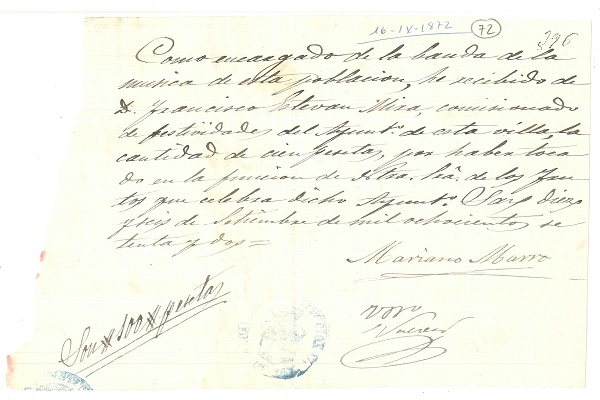 16-IX-1872 72 296
Como encargado de la banda de la
musica de esta poblacion, he recibido de
D. Francisco Estevan Mira, comisionado
de festividades del Ayunt.º de esta villa, la
cantidad de cien pesetas, por haber toca
do en la funcion de Ntra. Sra. de los
que celebra dicho Ayunt.º diez
y seis de Setiembre de mil ochocientos se
tenta y dos=
Mariano Marro
Son # 100 # pesetas